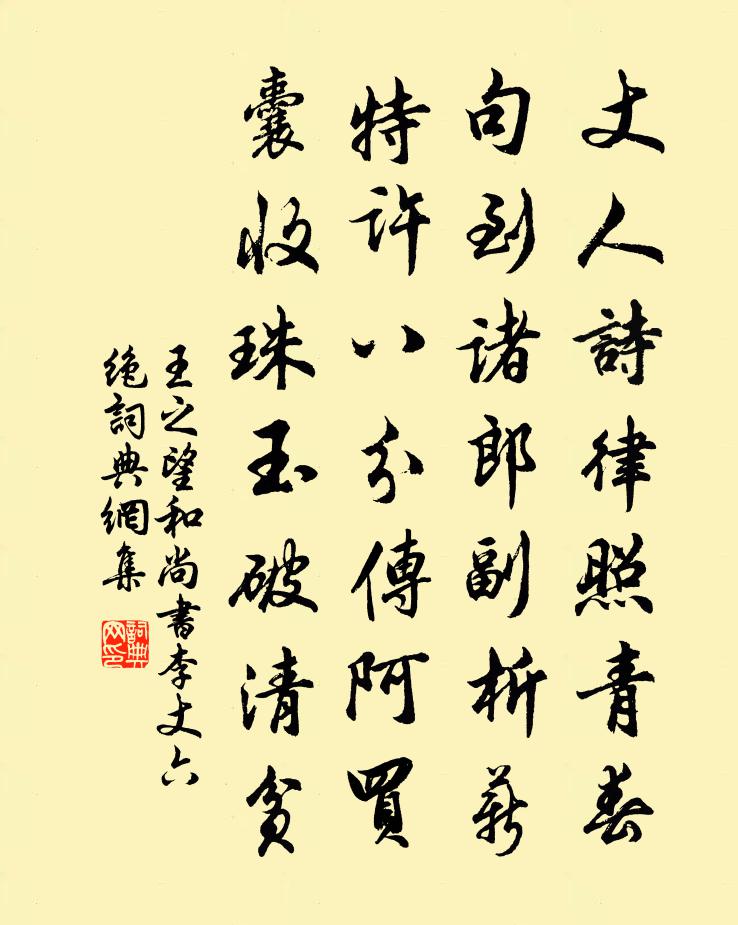 丈人詩律照青春
句到諸郎副析薪
特許八分傳阿買
囊收珠玉破清貧
王之望和尚書李丈六
絶詞典網集
詞典网印